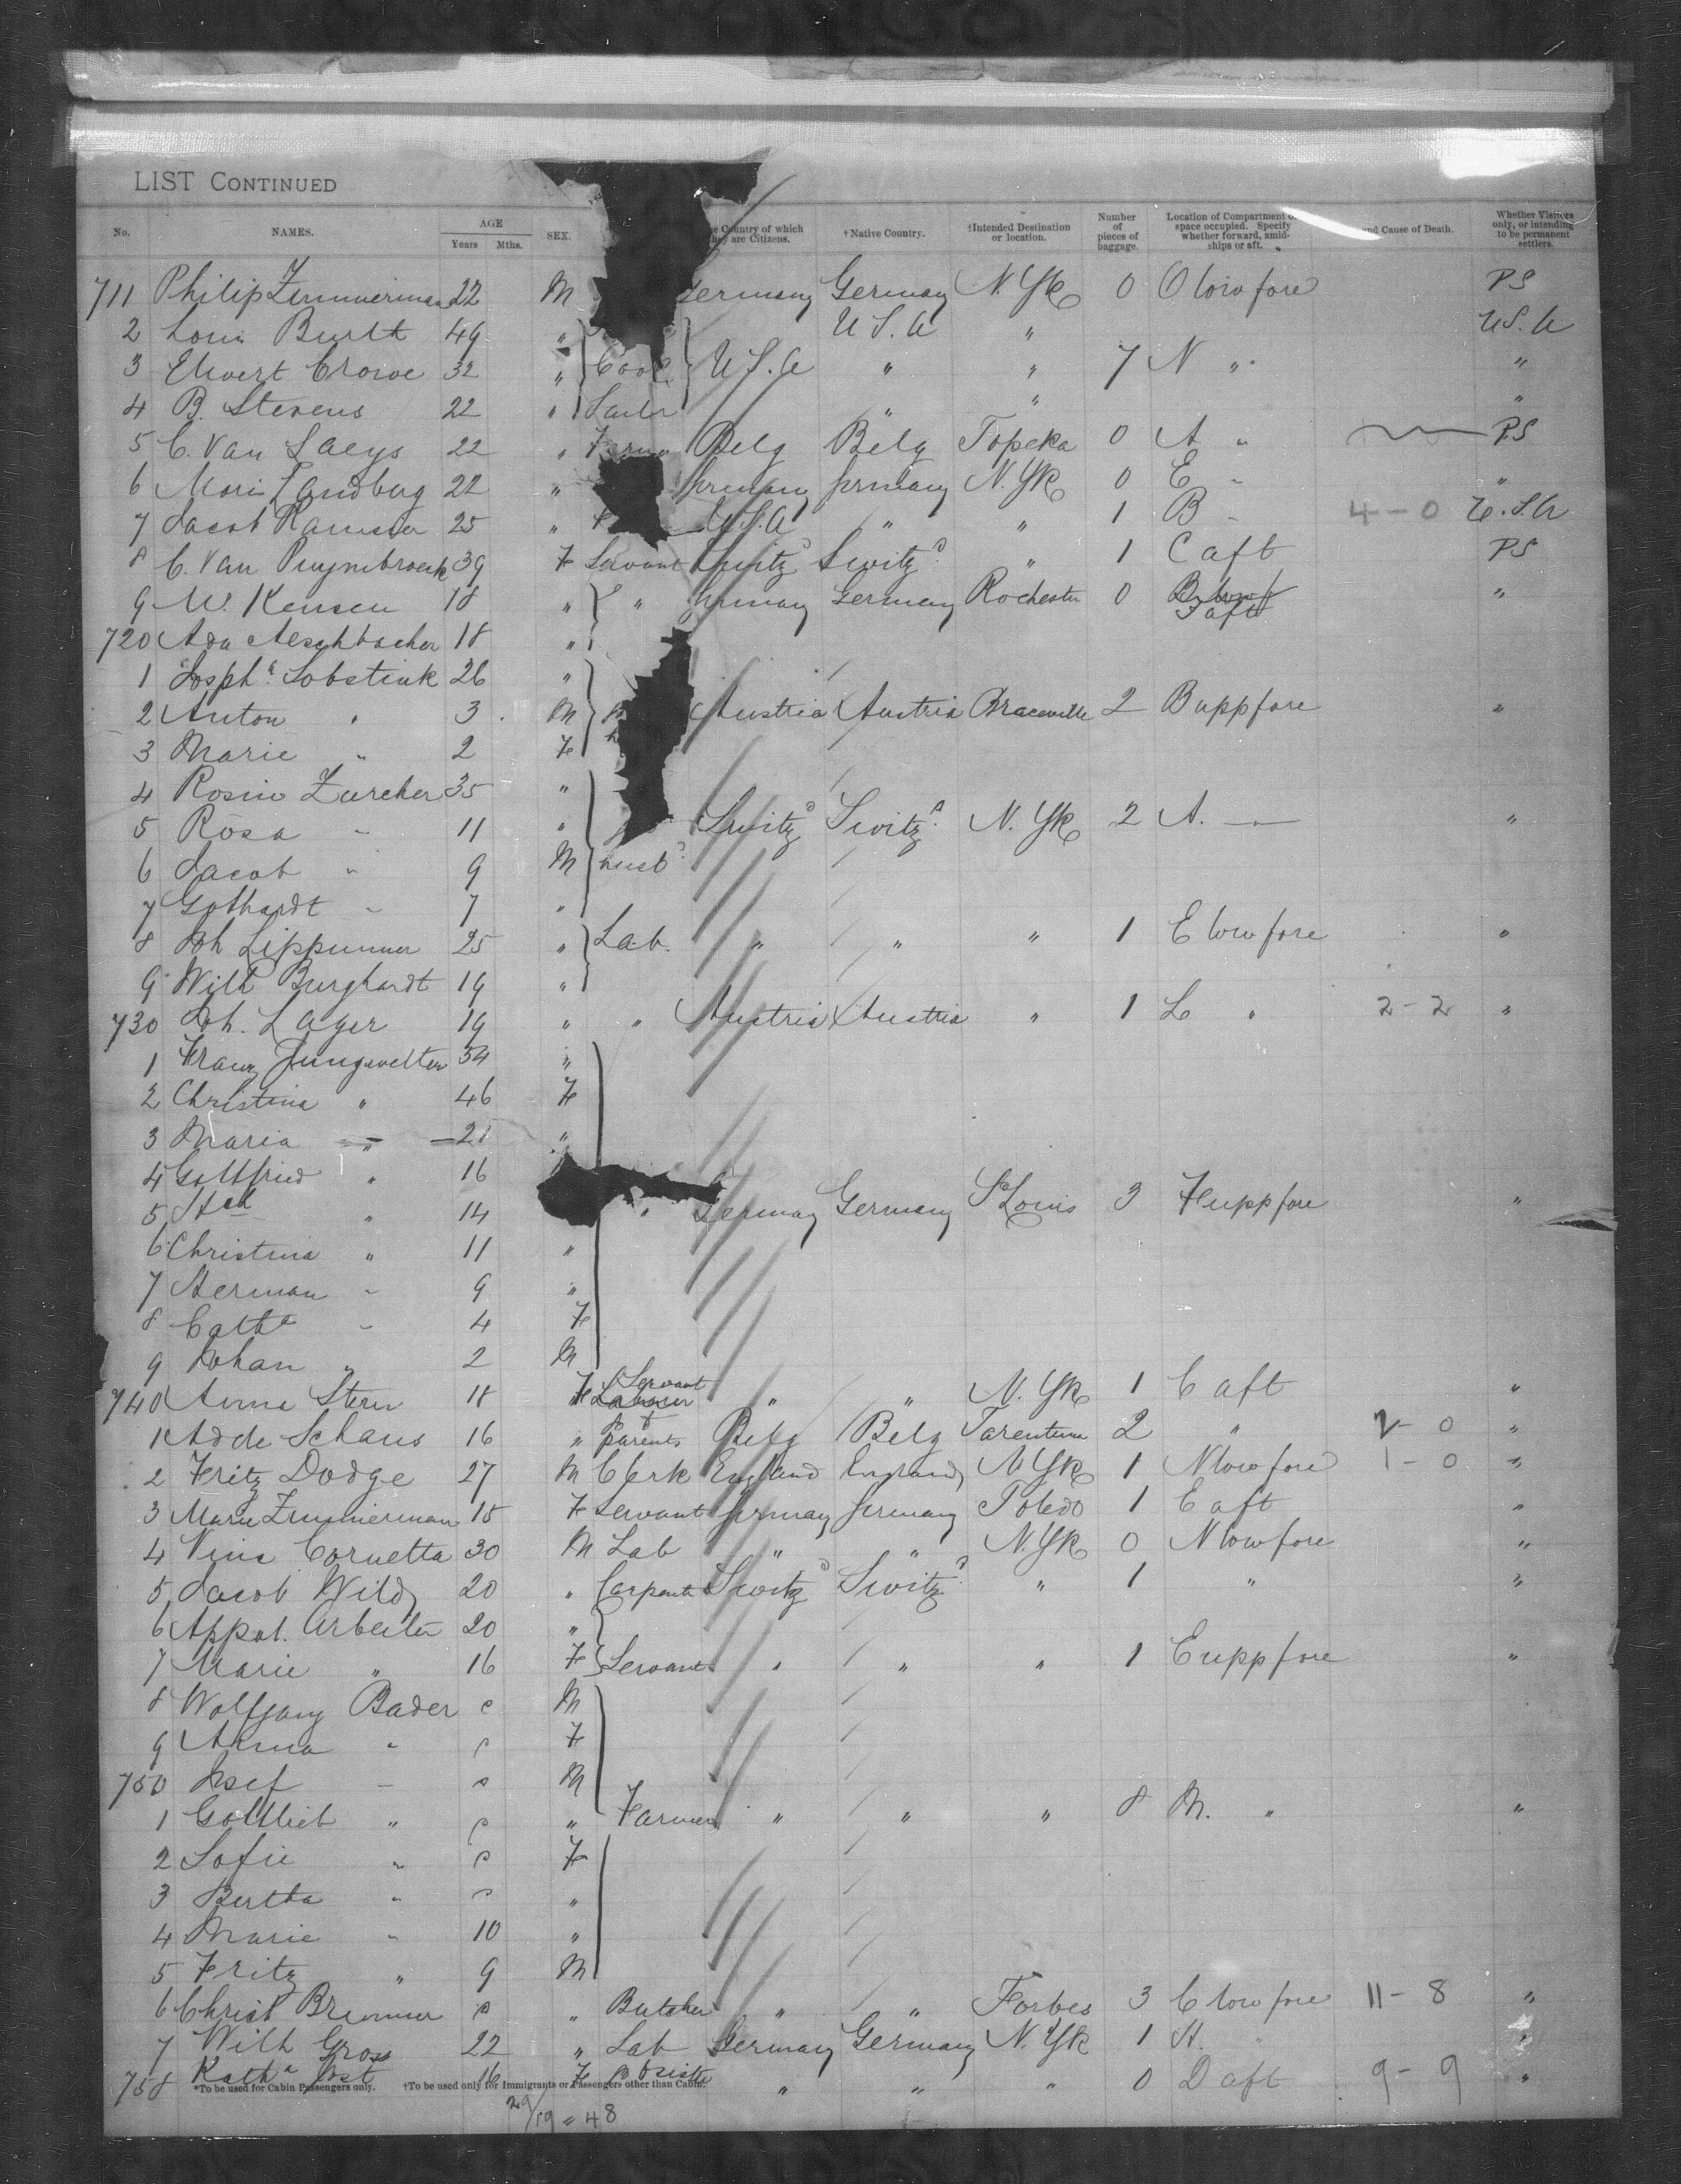 LIST CONTINUED
No. NAMES. AGE Years Mths. SEX. Country of which they are Citizens. †Native Country. †Intended Destination or location. Number of pieces of baggage. Location of Compartment or space occupied. Specify whether forward, amidships or aft. and Cause of Death. Whether Visitors only, or intending to be permanent settlers.
711 Philip Zimmerman 22 M Germany Germany N. Yk 0 O low fore PS
2 Burlt 49 " U S. A " U S. A
3 Crowe 32 " Cook U S. A " " 7 N " "
4 B. Stevens 22 " " " "
5 C. Van Laeys 22 " Belg Belg Topeka 0 A " PS
6 Landberg 22 " Germany Germany N. Yk 0 E " "
7 Jacob 25 " U S. A " " 1 B " 4-0 U. S. A
8 C. Van Puymbroeck 39 F Servant Switz'd Switz'd " 1 C aft PS
9 W. Kensen 18 " " Germany Germany Rochester 0 F aft "
720 Ada Aeschbacher 18 "
1 Josph'a Sobstink 26 "
2 Anton " 3 M Austria Austria Braceville 2 B upp fore "
3 Marie " 2 F
4 Rosine Zurcher 35 "
5 Rosa " 11 " Switz'd Switz'd N. Yk 2 A. — "
6 Jacob " 9 M husb'd
7 Gothardt " 7 "
8 Joh Lippunner 25 " Lab. " " " 1 E low fore "
9 Wilh Burghardt 19 "
730 Joh. Lager 19 " " Austria Austria " 1 L " 2-2 "
1 Franz 54 "
2 Christina " 46 F
3 Maria " 21 "
4 Gottfried " 16
5 " 14 " Germany Germany St Louis 3 F upp fore "
6 Christina " 11 "
7 Herman " 9 "
8 Cath'a " 4 F
9 Johan " 2 M
740 Anna Stern 18 F Servant " " N. Yk 1 C aft "
1 Adele Schaus 16 " to parents Belg Belg Tarentum 2 " 2-0 "
2 Fritz Dodge 27 M Clerk England England N. Yk 1 N low fore 1-0 "
3 Marie Zimmerman 15 F Servant Germany Germany Toledo 1 C aft "
4 Cornetta 30 M Lab " " N. Yk 0 N low fore "
5 Jacob Wild 20 " Carpenter Switz'd Switz'd " 1 " "
6 Appol. Arbeiter 20 "
7 Marie " 16 F Servant " " " 1 E upp fore "
8 Wolfgang Bader M
9 Anna " F
750 Josef " M
1 Gottlieb " " Farmer " " " 8 M. " "
2 Sofie " F
3 Bertha " "
4 Marie " 10 "
5 Fritz " 9 M
6 Christ Brunner " Butcher " " Forbes 3 C low fore 11-8 "
7 Wilh Gross 22 " Lab Germany Germany N. Yk 1 H. " "
758 Kath'a Jost 16 F to sister " " " 0 D aft 9-9 "
*To be used for Cabin Passengers only. †To be used only for Immigrants or Passengers other than Cabin.
29/19 = 48